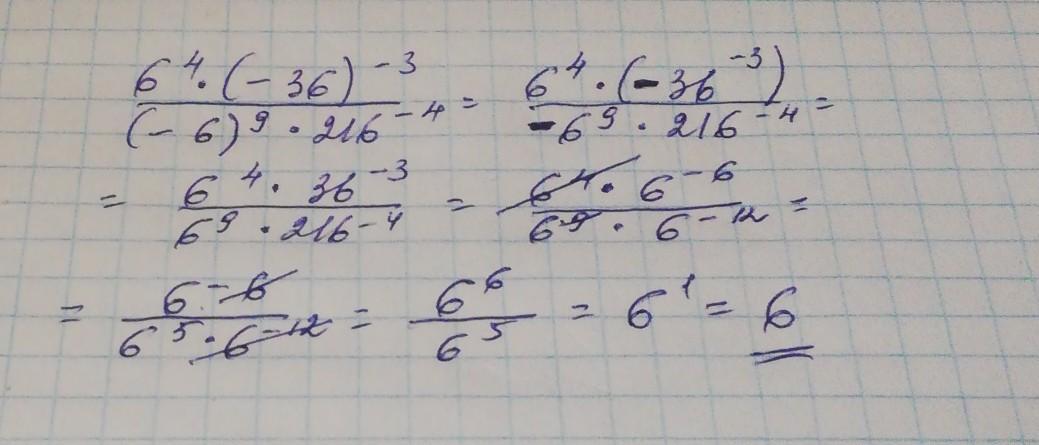 6⁴ · (-36)⁻³ / (-6)⁹ · 216⁻⁴ = 6⁴ · (-36⁻³) / -6⁹ · 216⁻⁴ =
= 6⁴ · 36⁻³ / 6⁹ · 216⁻⁴ = 6⁴ · 6⁻⁶ / 6⁹ · 6⁻¹² =
= 6⁻⁶ / 6⁵ · 6⁻¹² = 6⁶ / 6⁵ = 6¹ = 6